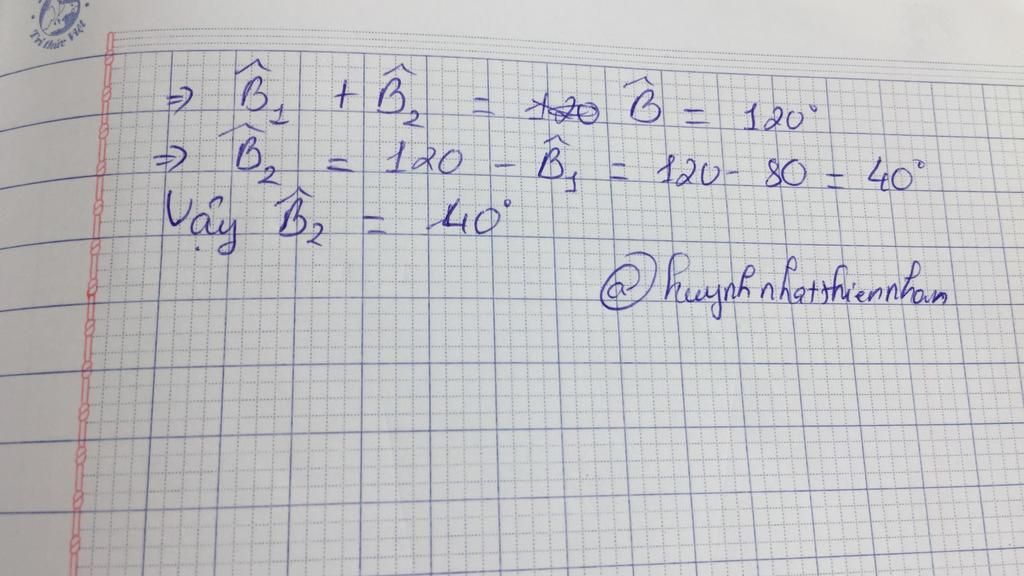 Tri thức Việt
⇒ B̂₁ + B̂₂ = 120 B̂ = 120°
⇒ B̂₂ = 120 - B̂₁ = 120 - 80 = 40°
Vậy B̂₂ = 40°
@huynhnhatthiennhan